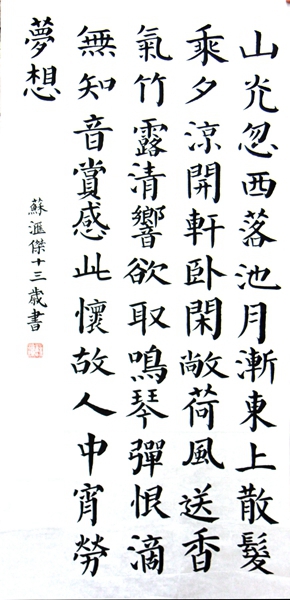 山光忽西落池月漸東上散髮
乘夕涼開軒臥閑敞荷風送香
氣竹露清響欲取鳴琴彈恨滴
無知音賞感此懷故人中宵勞
夢想
蘇滙傑十三歲書